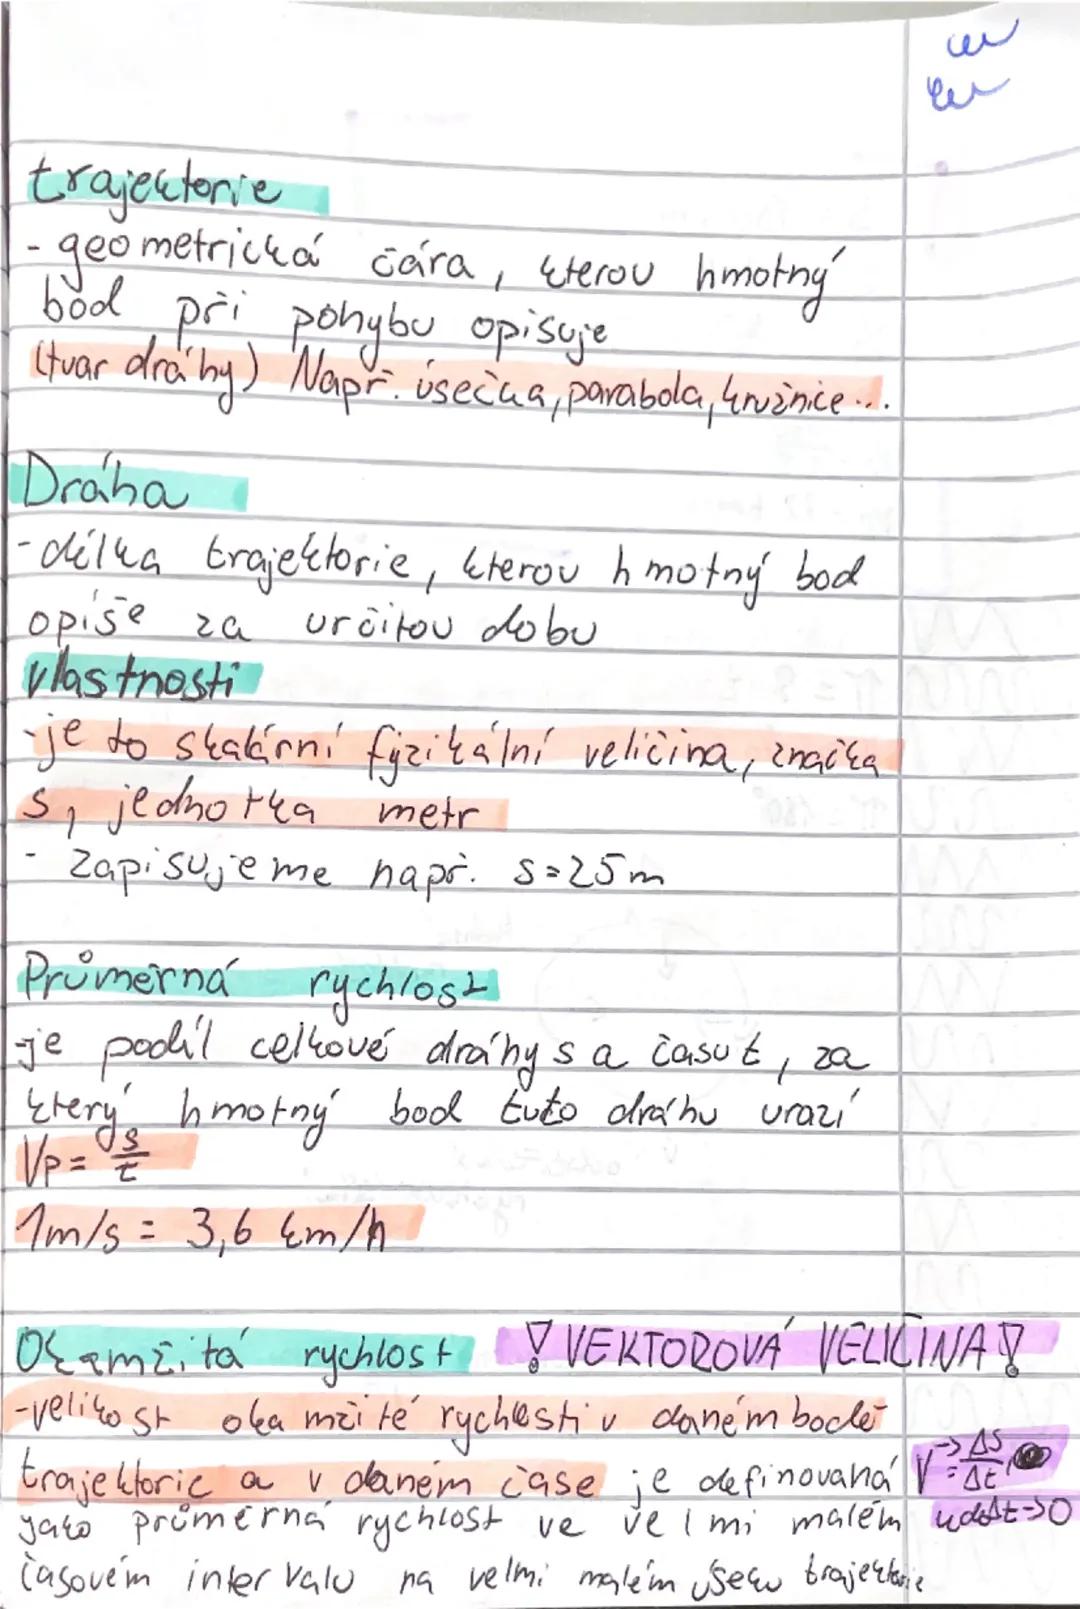 trajektorie
- geometrická čára, kterou hmotný
bod při pohybu opisuje
(tvar dráhy) Např. úsečka, parabola, kružnice...
Dráha
- délka trajektorie, kterou hmotný bod
opíše za určitou dobu
vlastnosti
- je to skalární fyzikální veličina, značka
s, jednotka metr
- Zapisujeme např. s=25m
Průměrná rychlost
- je podíl celkové dráhy s a času t, za
který hmotný bod tuto dráhu urazí
Vp = s/t
1m/s = 3,6 km/h
Okamžitá rychlost ! VEKTOROVÁ VELIČINA !
- velikost okamžité rychlosti v daném bodě
trajektorie a v daném čase je definovaná v⃗ = Δs/Δt,
jako průměrná rychlost ve velmi malém kde Δt->0
časovém intervalu na velmi malém úseku trajektorie